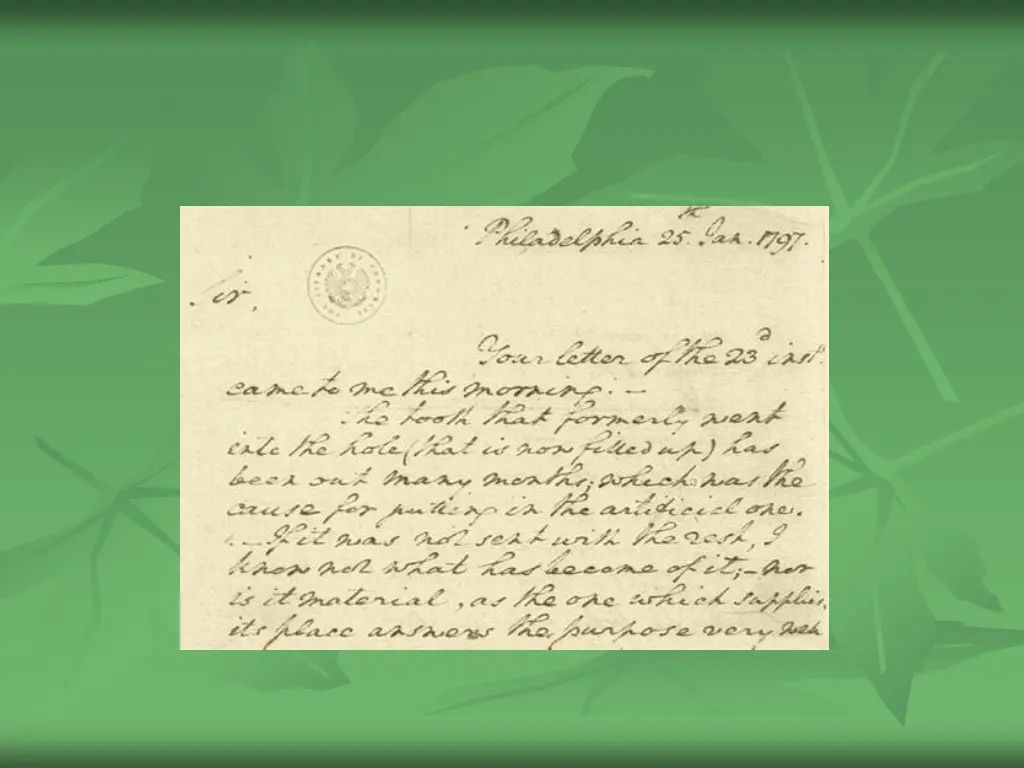 Philadelphia 25th Jan. 1797.
THE LIBRARY OF CONGRESS
Sir,
Your letter of the 23d inst.
came to me this morning.—
The tooth that formerly went
into the hole (that is now filled up) has
been out many months; which was the
cause for putting in the artificial one.
—If it was not sent with the rest, I
know not what has become of it;—nor
is it material, as the one which supplies
its place answers the purpose very well